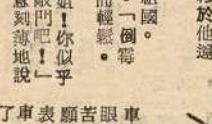 於他邊
祖國。「倒霉
而輕鬆。
姐！你似乎
敲門吧！」
到薄地說
車
眼
苦
願
表
車
了